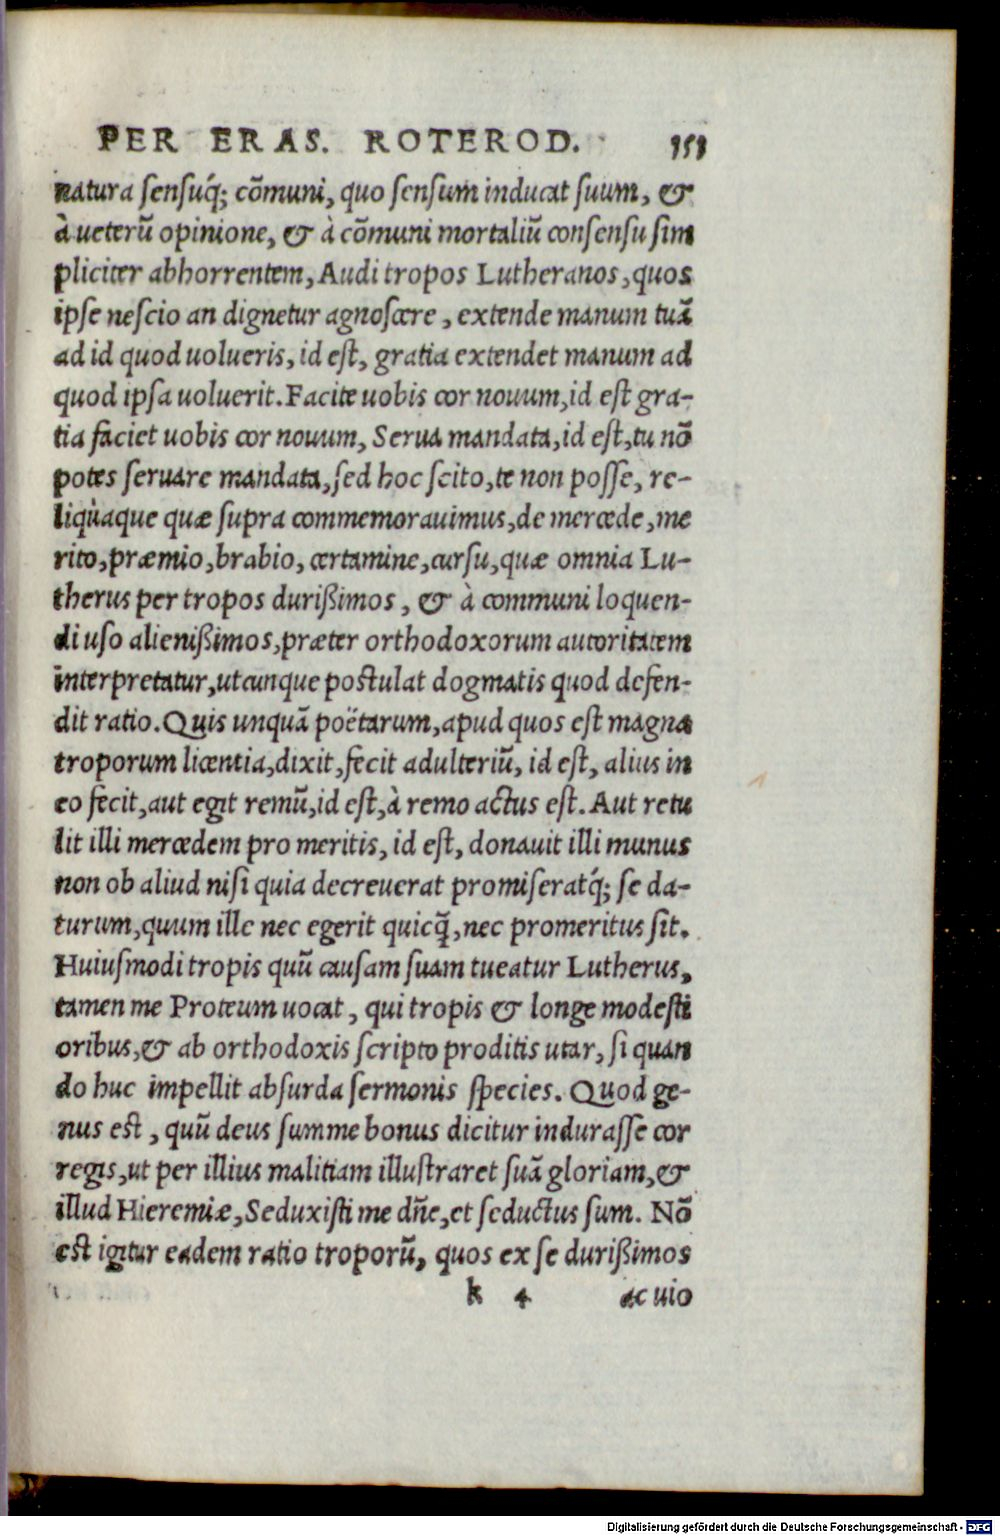 PER ERAS. ROTEROD. 151
natura ſenſuq́; cõmuni, quo ſenſum inducat ſuum, &
à ueterũ opinione, & à cõmuni mortaliũ conſenſu ſim
pliciter abhorrentem, Audi tropos Lutheranos, quos
ipſe neſcio an dignetur agnoſcere, extende manum tuã
ad id quod uolueris, id eſt, gratia extendet manum ad
quod ipſa uoluerit. Facite uobis cor nouum, id eſt gra-
tia faciet uobis cor nouum, Serua mandata, id eſt, tu nõ
potes ſeruare mandata, ſed hoc ſcito, te non poſſe, re-
liqùaque quæ ſupra commemorauimus, de mercede, me
rito, præmio, brabio, certamine, curſu, quæ omnia Lu-
therus per tropos durißimos, & à communi loquen-
di uſo alienißimos, præter orthodoxorum autoritatem
interpretatur, utcunque poſtulat dogmatis quod defen-
dit ratio. Quis unquã poëtarum, apud quos eſt magna
troporum licentia, dixit, fecit adulteriũ, id eſt, alius in
eo fecit, aut egit remũ, id eſt, à remo actus eſt. Aut retu
lit illi mercedem pro meritis, id eſt, donauit illi munus
non ob aliud niſi quia decreuerat promiſeratq́; ſe da-
turum, quum ille nec egerit quicq̃, nec promeritus ſit.
Huiuſmodi tropis quũ cauſam ſuam tueatur Lutherus,
tamen me Proteum uocat, qui tropis & longe modeſti
oribus, & ab orthodoxis ſcripto proditis utar, ſi quan
do huc impellit abſurda ſermonis ſpecies. Quod ge-
nus eſt, quũ deus ſumme bonus dicitur induraſſe cor
regis, ut per illius malitiam illuſtraret ſuã gloriam, &
illud Hieremiæ, Seduxiſti me dñe, et ſeductus ſum. Nõ
eſt igitur eadem ratio troporũ, quos ex ſe durißimos
k 4 ac uio
Digitalisierung gefördert durch die Deutsche Forschungsgemeinschaft - DFG